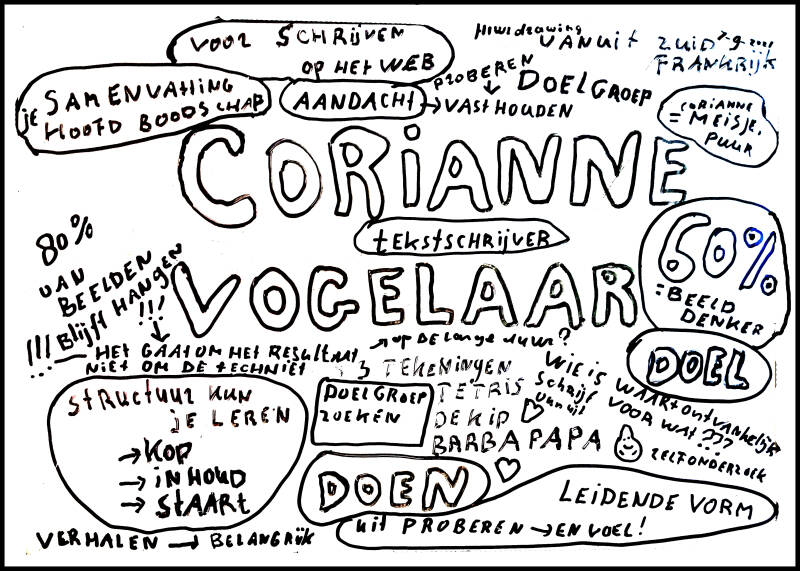 VOOR SCHRIJVEN
OP HET WEB
Hiwidrawing
VANUIT ZUID 7-9-2021
FRANKRIJK
je SAMENVATTING
HOOFD BOODSCHAP
AANDACHT → VASTHOUDEN
PROBEREN
DOELGROEP
CORIANNE
= MEISJE,
PUUR
CORIANNE
tEKStSCHRIJVER
VOGELAAR
60%
= BEELD
DENKER
DOEL
80%
VAN
BEELDEN
!!! Blijft HANGEN
!!!
→ OP DE lange duur?
HET GAAT OM HET RESULTAAT
NIET OM DE TECHNIEK
StRuctuur KUN
je LEREN
→ KOP
→ iNHOUD
→ StAARt
DOELGROEP
ZOEKEN
3 TEKENINGEN
TETRIS
DE KIP
BARBAPAPA
Schrijf
vanuit
WIE IS WAAR ontvankelijk
VOOR WAT???
ZELFONDERZOEK
DOEN
LEIDENDE VORM
uit PROBEREN → EN VOEL!
VERHALEN → BELANGRIJK